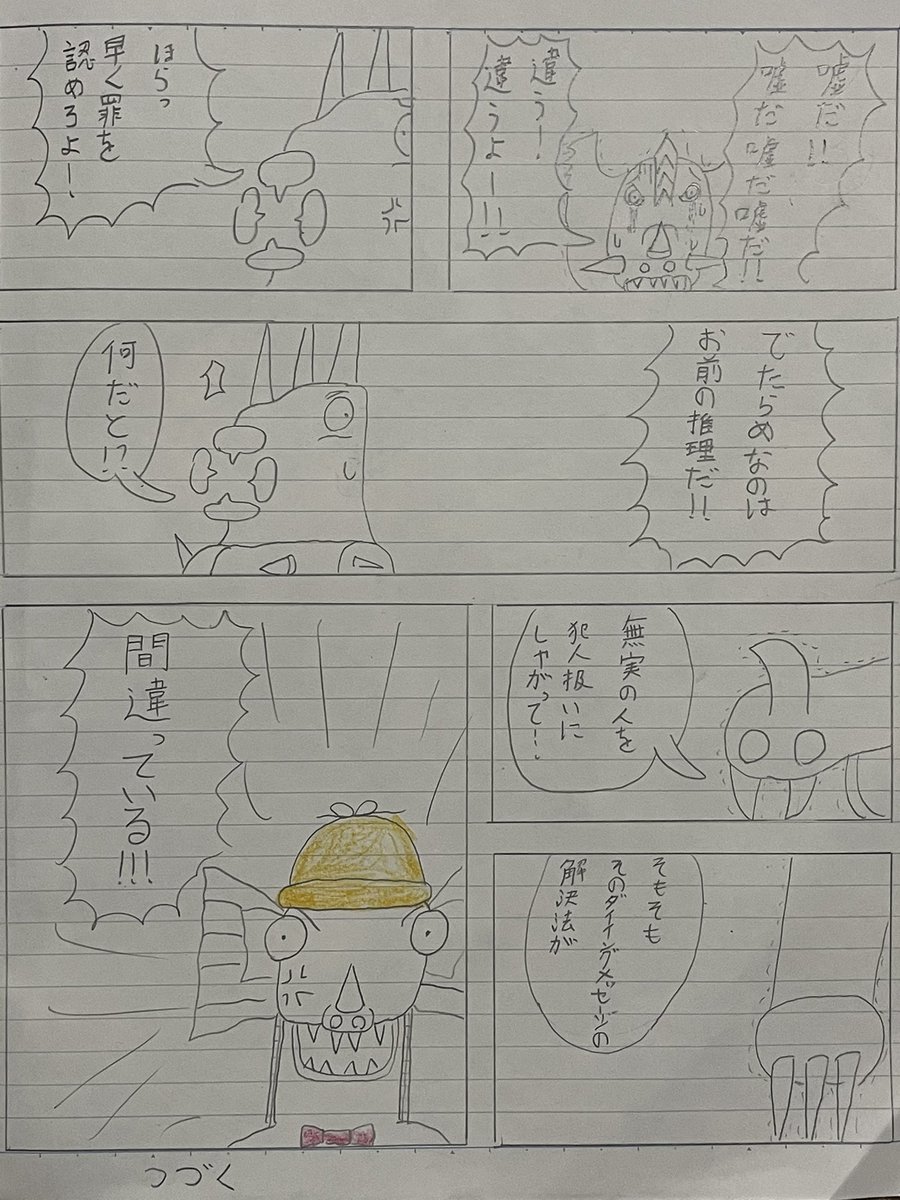 嘘だ!!
嘘だ嘘だ嘘だ!!
違う!
違うよー!!
ほらっ
早く罪を
認めろよー!
でたらめなのは
お前の推理だ!!
何だと!?
無実の人を
犯人扱いに
しやがって!
そもそも
そのダイイングメッセージの
解決法が
間違っている!!!
つづく